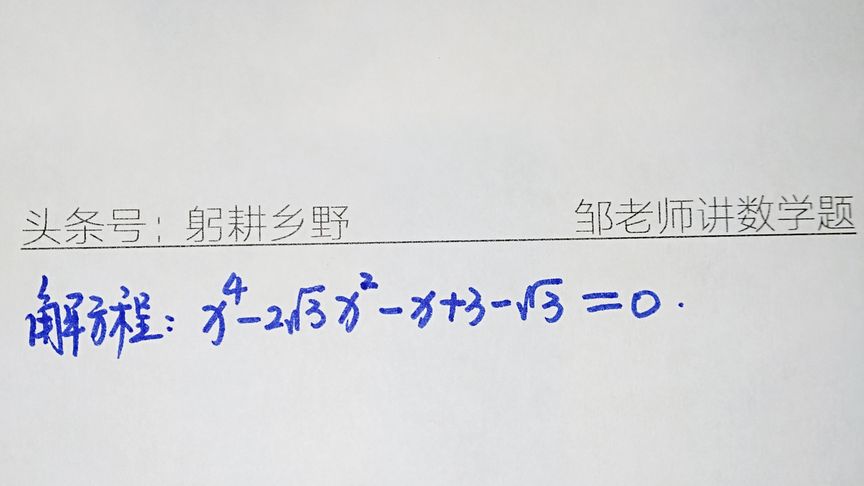 头条号：躬耕乡野 邹老师讲数学题
解方程：x⁴-2√3x²-x+3-√3=0.